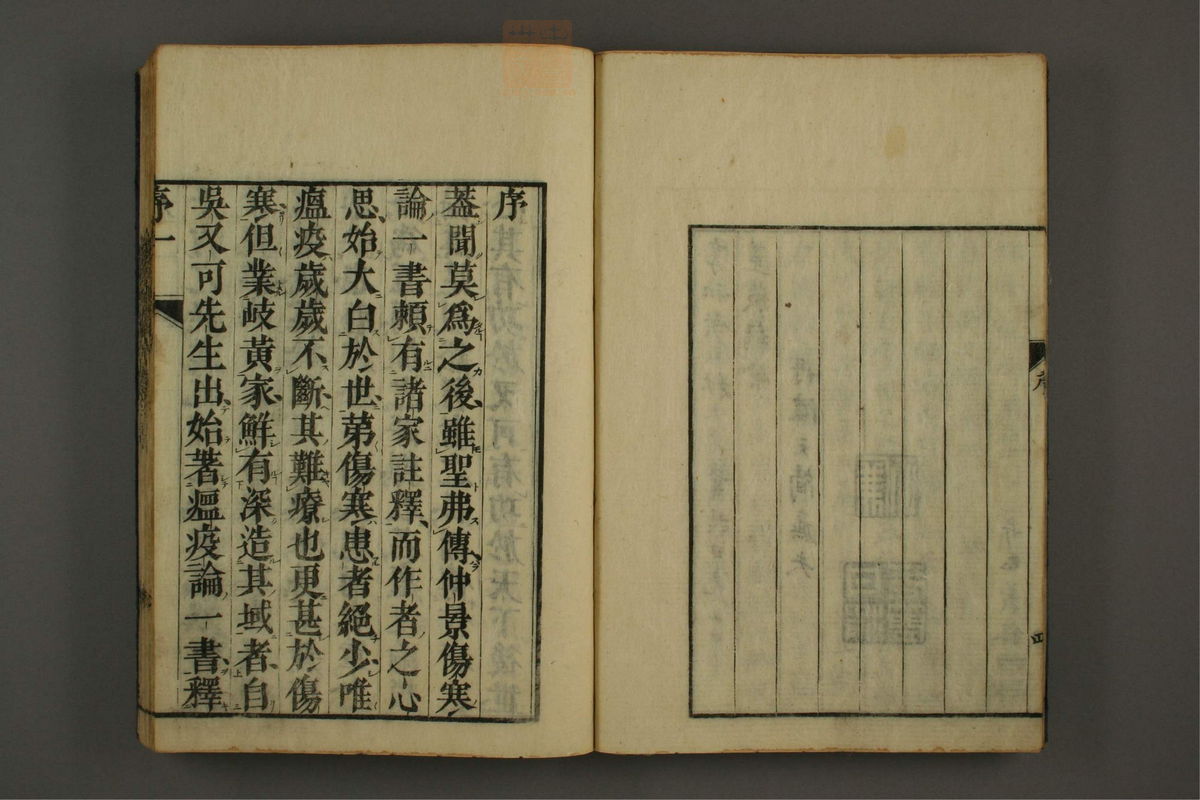 序
四
序
蓋聞莫爲之後雖聖弗傳仲景傷寒
論一書賴有諸家註釋而作者之心
思始大白於世苐傷寒患者絕少唯
瘟疫歲歲不斷其難療也更甚於傷
寒但業岐黃家鮮有深造其域者自
吳又可先生出始著瘟疫論一書釋
序一